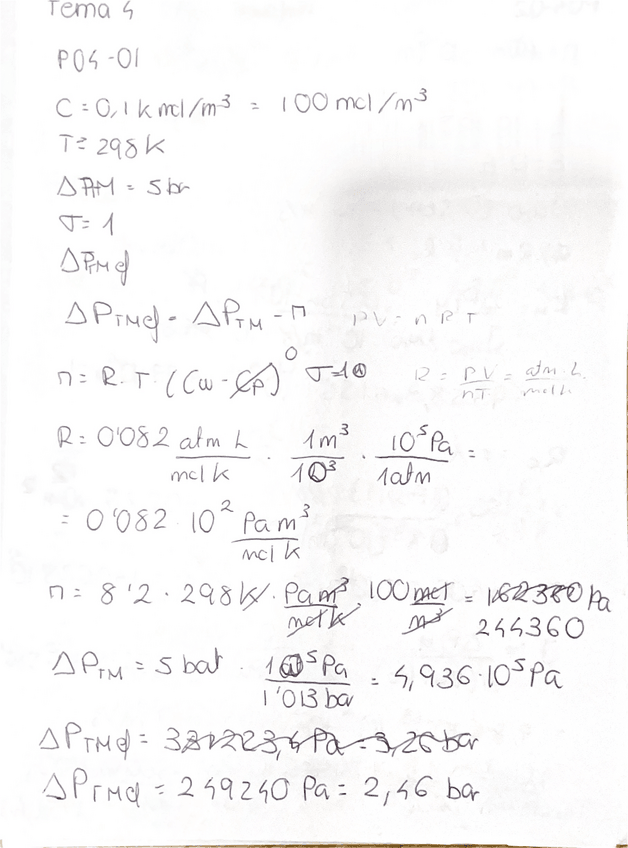 Tema 4
P04-01
C = 0,1 kmol/m³ = 100 mol/m³
T = 298 K
ΔPTM = 5 br
σ = 1
ΔPTMef
ΔPTMef = ΔPTM - π PV = nRT
π = R.T.(Cw - Cp) 0 σ=1 R = PV/nT = atm.L/mol k
R = 0'082 atm L/mol k · 1m³/10³ · 10⁵Pa/1atm =
= 0'082 · 10² Pa m³/mol k
π = 8'2 · 298 K · Pa m³/mol k · 100 mol/m³ = 162380 Pa
244360
ΔPTM = 5 bat · 10⁵ Pa/1'013 bar = 4,936·10⁵ Pa
ΔPTMef = 331223,4 Pa = 3,26 bar
ΔPTMef = 249240 Pa = 2,46 bar